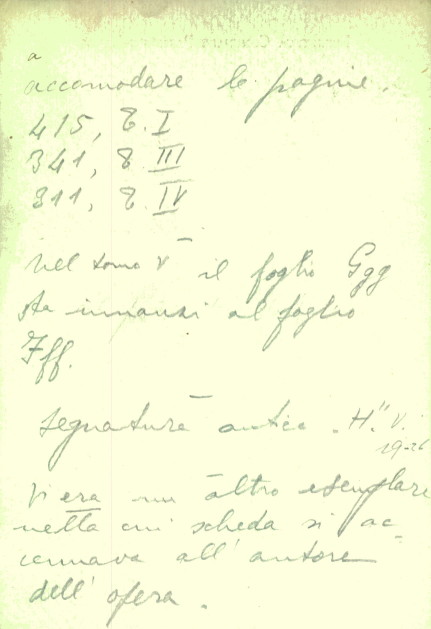 a
accomodare le pagine.
415, T. I
341, T. III
811, T. IV
Nel tomo V il foglio Ggg
sta innanzi al foglio
Fff.
Segnatura antica. H". V.
19-26
Vi era un altro esemplare
nella cui scheda si ac-
cennava all'autore
dell'opera.